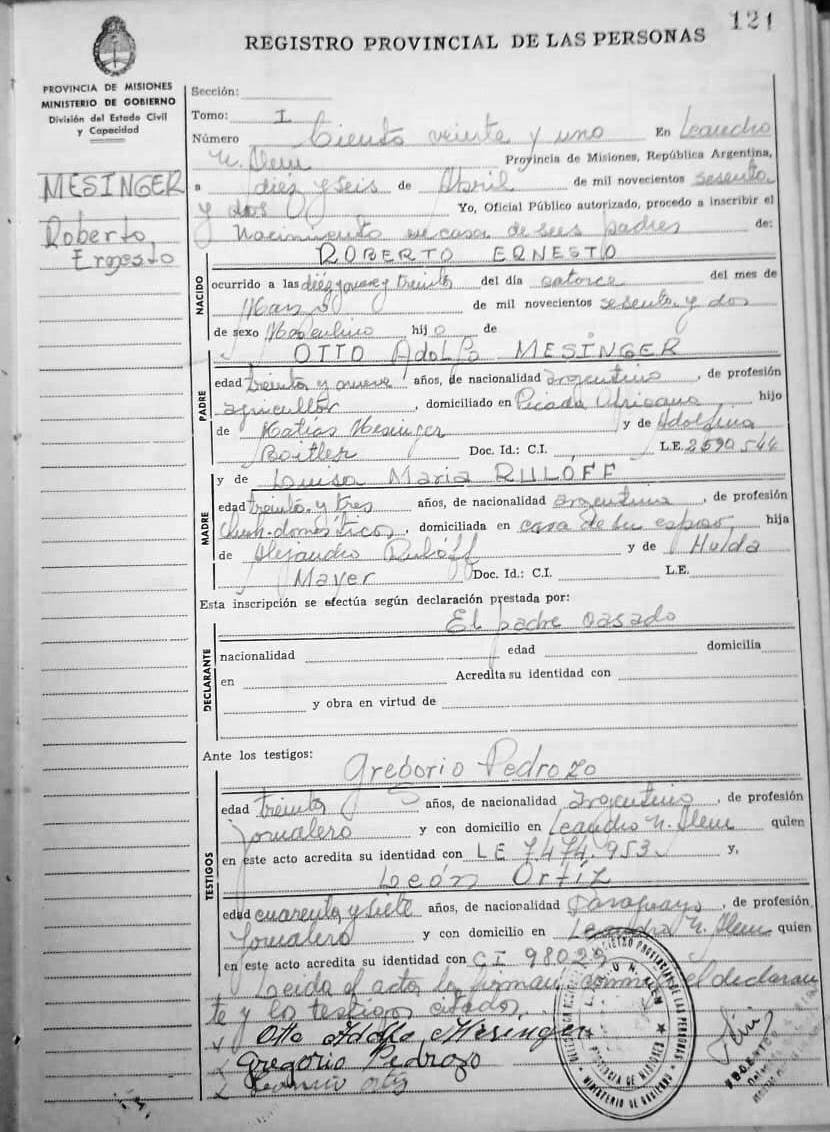 121
REGISTRO PROVINCIAL DE LAS PERSONAS
PROVINCIA DE MISIONES
MINISTERIO DE GOBIERNO
División del Estado Civil
y Capacidad
MESINGER
Roberto
Ernesto
Sección:
Tomo: I
Número Ciento veinte y uno En Leandro
N. Alem Provincia de Misiones, República Argentina,
a diez y seis de Abril de mil novecientos sesenta
y dos Yo, Oficial Público autorizado, procedo a inscribir el
Nacimiento en casa de sus padres de:
NACIDO
ROBERTO ERNESTO
ocurrido a las diez y nueve y treinta del día catorce del mes de
Marzo de mil novecientos sesenta y dos
de sexo Masculino hijo de
PADRE
OTTO Adolfo MESINGER
edad treinta y nueve años, de nacionalidad argentino, de profesión
agricultor, domiciliado en Picada Africana, hijo
de Matias Mesinger y de Adolfina
Boitler Doc. Id.: C.I. L.E. 2590544
MADRE
y de Luisa Maria RULOFF
edad treinta y tres años, de nacionalidad argentina, de profesión
domésticos, domiciliada en casa de su esposo, hija
de Alejandro Ruloff y de Hulda
Mayer Doc. Id.: C.I. L.E.
Esta inscripción se efectúa según declaración prestada por:
DECLARANTE
El padre casado
nacionalidad edad domicilia
en Acredita su identidad con
y obra en virtud de
Ante los testigos:
TESTIGOS
Gregorio Pedrozo
edad treinta años, de nacionalidad argentino, de profesión
Jornalero y con domicilio en Leandro N. Alem quien
en este acto acredita su identidad con LE 7474.953 y,
León Ortíz
edad cuarenta y siete años, de nacionalidad Paraguayo, de profesión
Jornalero y con domicilio en Leandro N. Alem quien
en este acto acredita su identidad con CI 98022
Leida el acta la firman conmigo el declaran
te y los testigos citados
Otto Adolfo Mesinger
Gregorio Pedrozo
Ortiz
REGISTRO PROVINCIAL DE LAS PERSONAS
PROVINCIA DE MISIONES
MINISTERIO DE GOBIERNO